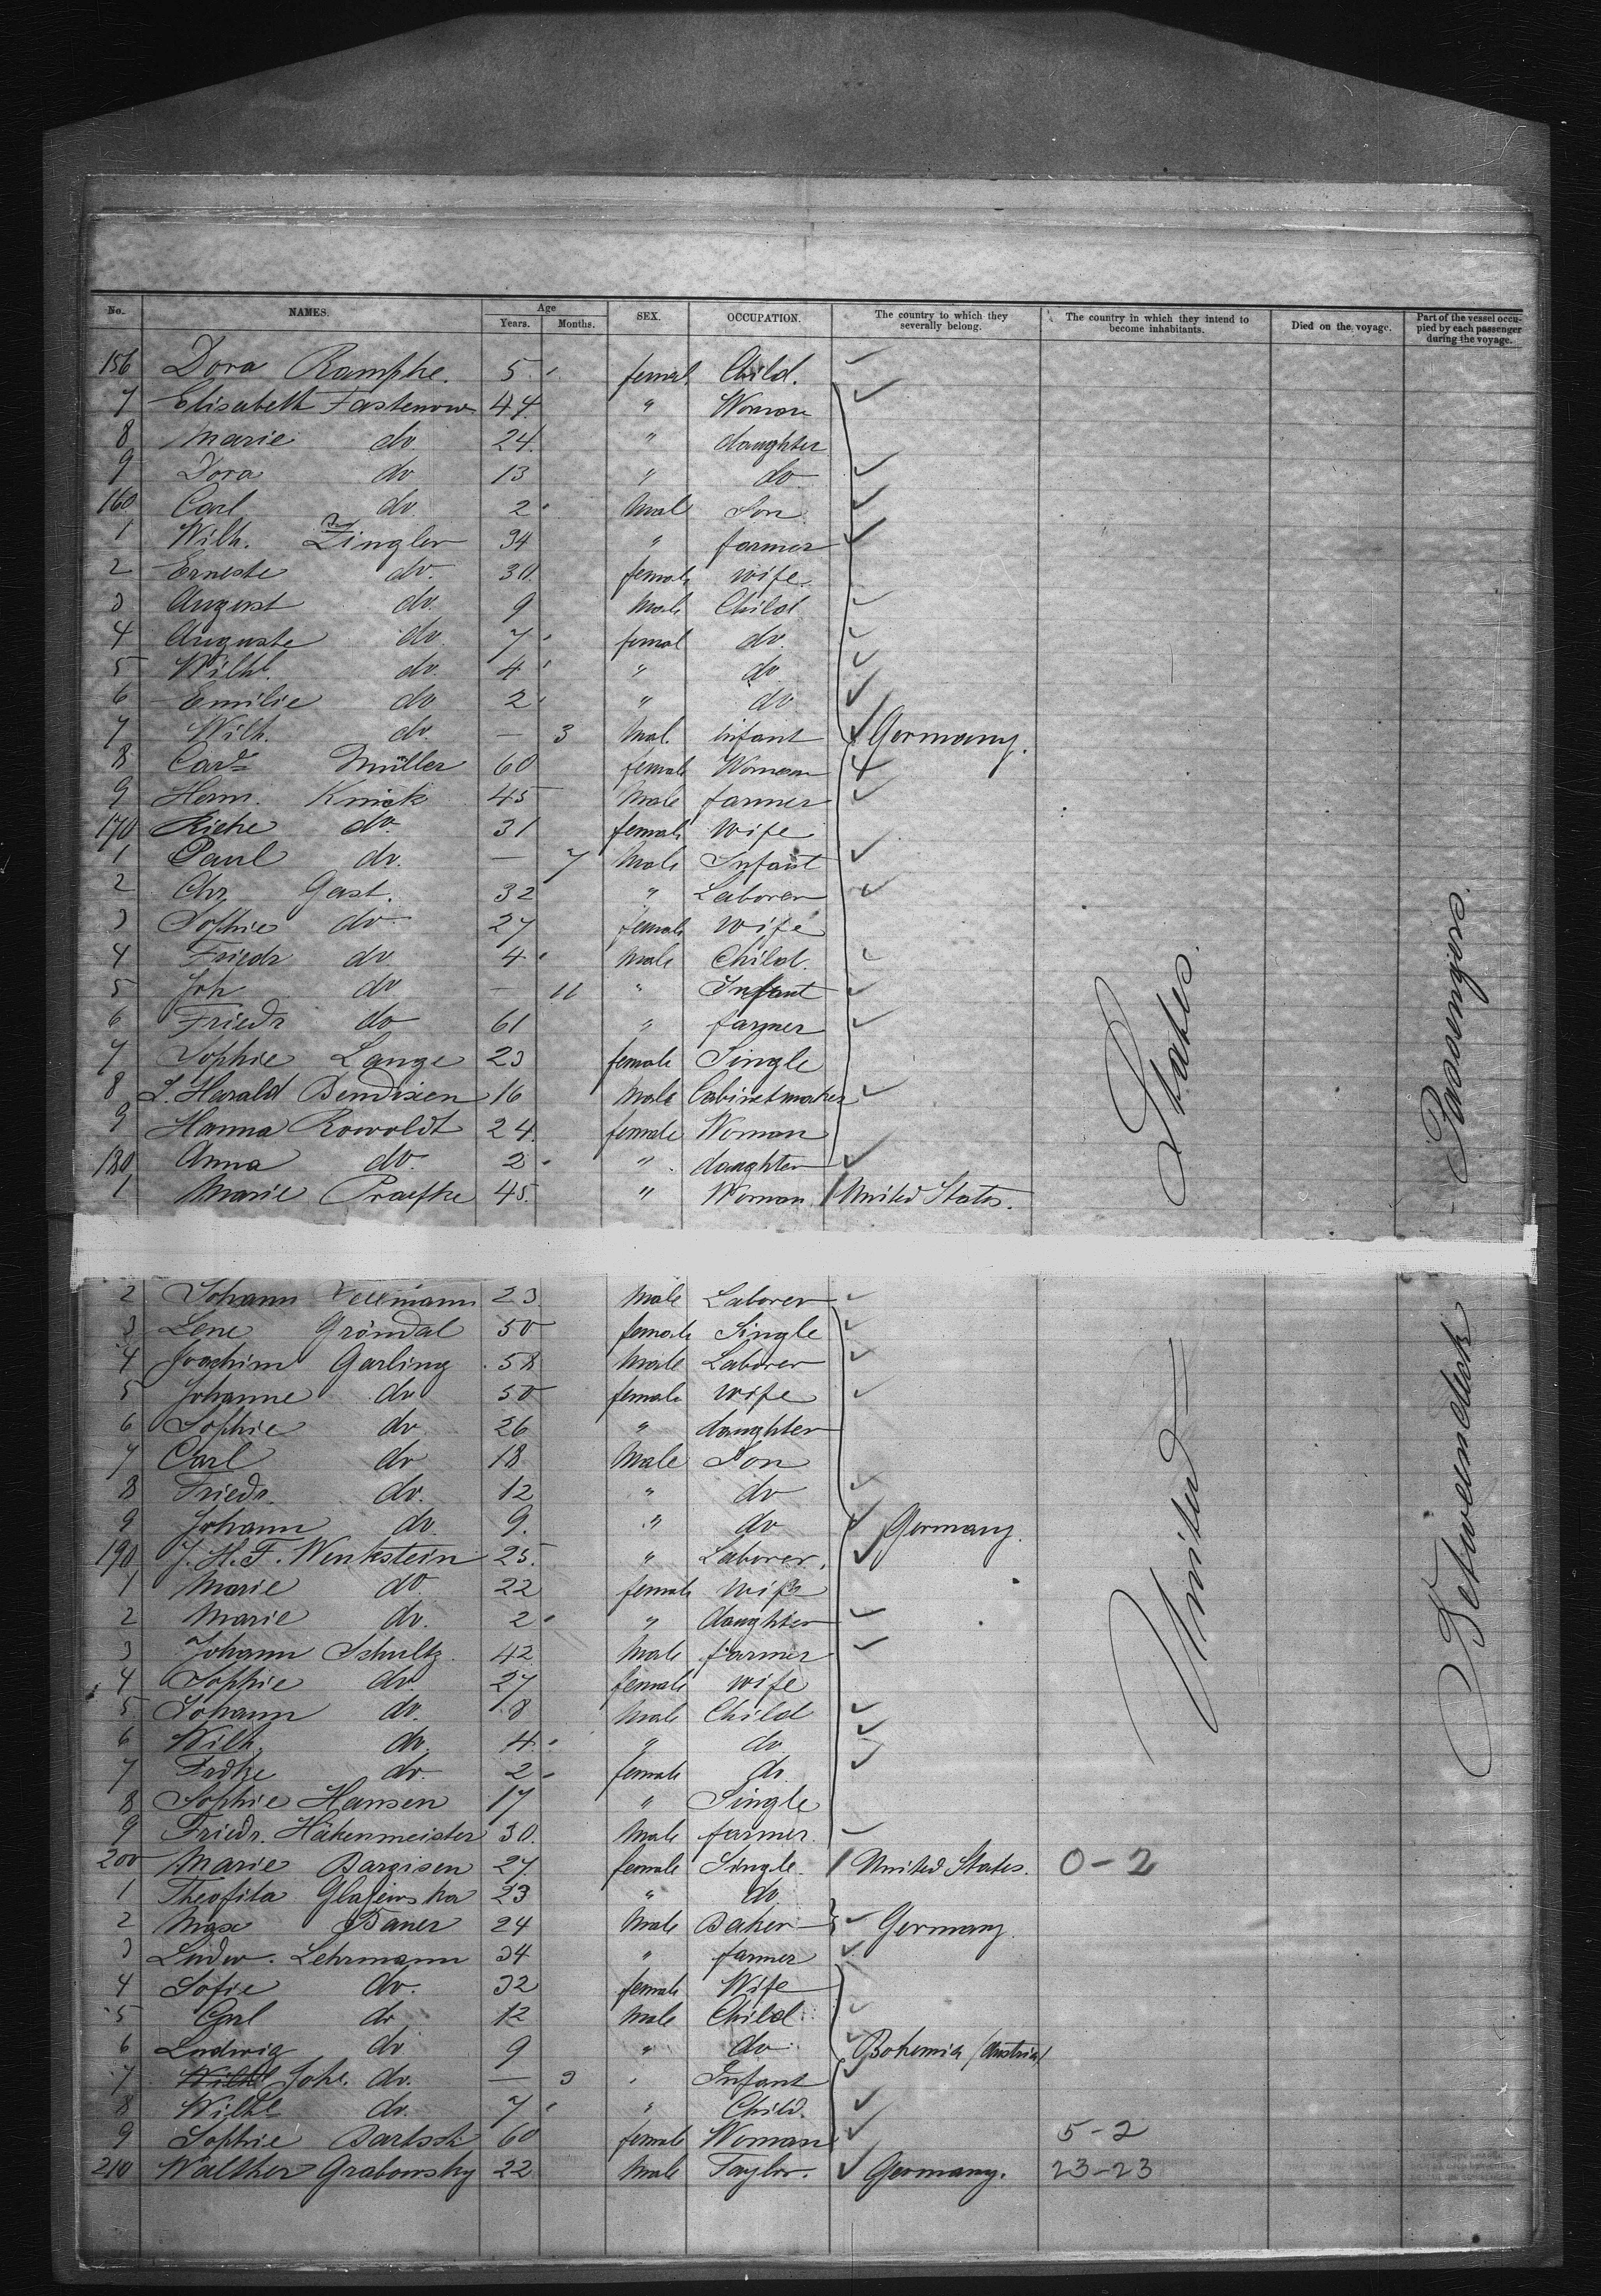 No. NAMES. Age Years. Months. SEX. OCCUPATION. The country to which they severally belong. The country in which they intend to become inhabitants. Died on the voyage. Part of the vessel occupied by each passenger during the voyage.
156 Dora Rampke. 5 femal Child.
7 Elisabeth Fastenow 44 " Woman
8 Marie do 24 " daughter
9 Dora do 13 " do
160 Carl do 2 Male Son
1 Wilh. Zingler 34 " farmer
2 Erneste do. 30 female wife
3 August do. 9 Male Child
4 Auguste do. 7 femal do.
5 Wilhe. do. 4 " do
6 Emilie do 2 " do
7 Wilh. do. — 3 Mal. infant Germany.
8 Care Müller 60 female Woman
9 Herm. Kniok 45 Male farmer
170 Rieke do. 31 female Wife
1 Paul do. — 7 Male Infant
2 Chr. Gast. 32 " Laborer
3 Sophie do 27 female wife
4 Friedr do 4 Male Child.
5 Joh do — 11 " Infant
6 Friedr do 61 " farmer
7 Sophie Lange 23 female Single
8 L. Harald Bendixen 16 Male Cabinetmaker
9 Hanna Rowoldt 24 female Woman
180 Anna do. 2 " daughter
1 Marie Praefke 45 " Woman United States.
2 Johann 23 Male Laborer
3 Lene Gröndal 50 female Single
4 Joachim Garling 58 Male Laborer
5 Johanne do 50 female wife
6 Sophie do. 26 " daughter
7 Carl do 18 Male Son
8 Friedr. do. 12 " do
9 Johann do. 9. " do Germany.
190 J. H. F. Wenkstein 25. " Laborer.
1 Marie do. 22 female wife
2 Marie do. 2 " daughter
3 Johann Schultz. 42 Male farmer
4 Sophie do 27 female wife
5 Johann do. 8 Male Child
6 Wilh. do. 4 " do
7 Frdke do. 2 female do.
8 Sophie Hansen 17 " Single
9 Friedr. Häkenmeister 30. Male farmer.
200 Marie Bargisen 27 female Single. United States. 0-2
1 Theofila Glajewska 23 " do
2 Max Bauer 24 Male Baker Germany
3 Ludw. Lehrmann 34 " farmer
4 Sofie do. 32 female Wife
5 Carl do 12 Male Child
6 Ludwig do 9 " do Bohemia (Austria)
7 Wilhe Johe. do. — 3 " Infant
8 Wilhe do. 7 " Child.
9 Sophie Bartsch 60 female Woman 5-2
210 Walther Grabowsky 22 Male Taylor. Germany. 23-23
United States.
Betweendeck Passengers.